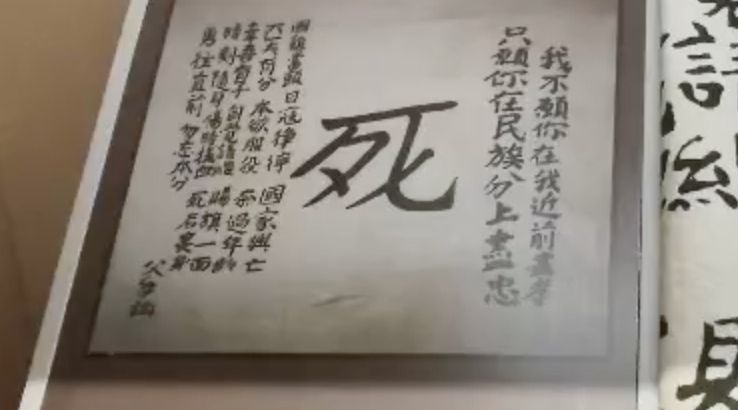 我不願你在我近前盡孝
只願你在民族分上盡忠
死
國難 日寇 國家興亡
匹夫有分 本欲服役 奈過年齡
幸吾有子 自覺請纓 賜旗一面
時刻隨身 傷時拭血 死後裹身
勇往直前 勿忘本分
父手諭